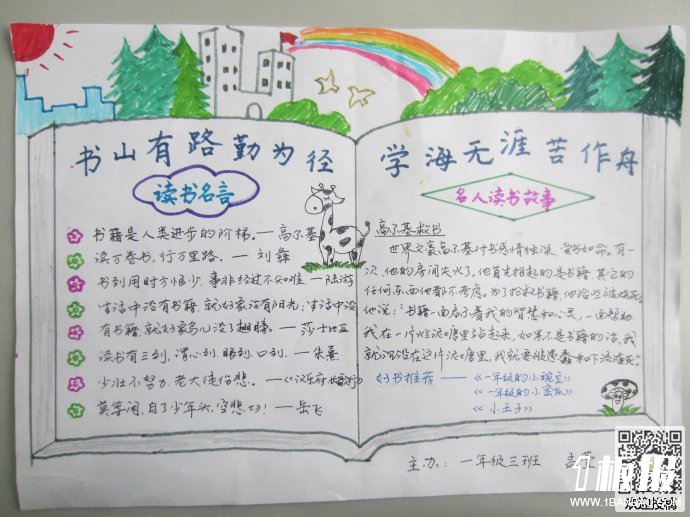 书山有路勤为径
学海无涯苦作舟
读书名言
书籍是人类进步的阶梯。—高尔基
读万卷书,行万里路。—刘彝
书到用时方恨少,事非经过不知难。—陆游
生活中没有书籍,就好象没有阳光;生活中没
有书籍,就好象鸟儿没了翅膀。—莎士比亚
读书有三到,谓心到,眼到,口到。—朱熹
少壮不努力,老大徒伤悲。—《汉乐府·长歌行》
莫等闲,白了少年头,空悲切!—岳飞
名人读书故事
高尔基救书
世界文豪高尔基对书感情独深,爱书如命。有一
次,他的房间失火了,他首先抱起的是书籍,其它的
任何东西他都不考虑。为了抢救书籍,他险些被烧死。
他说:“书籍一面启示着我的智慧和心灵,一面帮助
我在一片烂泥塘里站起来,如果不是书籍的话,我
就沉没在这片泥塘里,我就要被愚蠢和下流淹死。”
好书推荐——《一年级的小豌豆》
《一年级的小蜜瓜》
《小王子》
主办:一年级三班 孟
板报
WWW.1BANBAO.COM
欢迎投稿